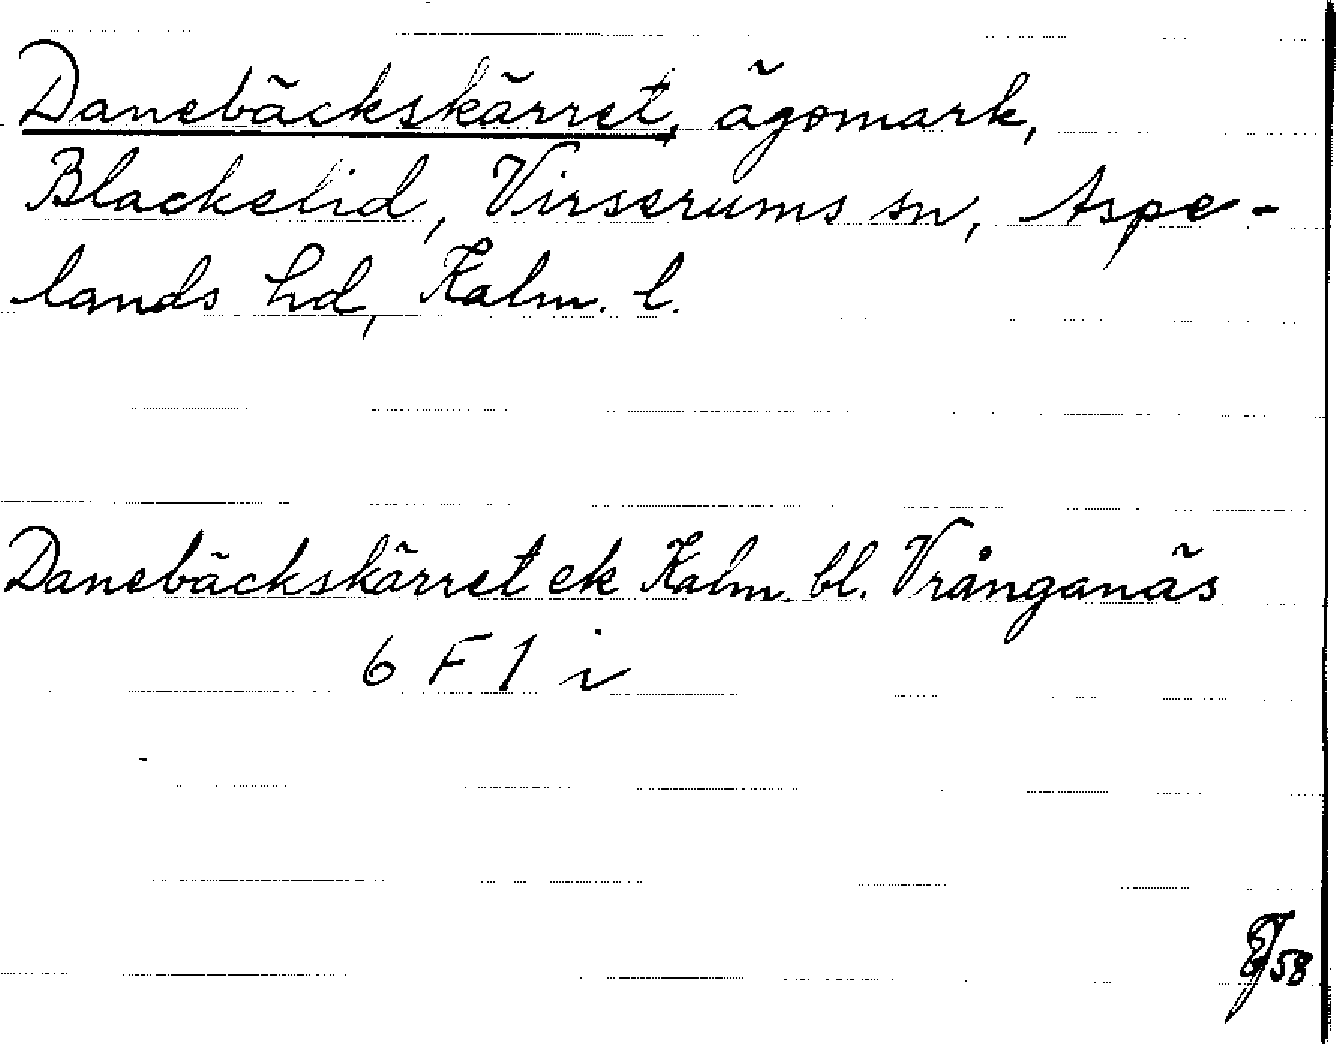 Danebäckskärret, ägomark,
Blackelid, Virserums sn, Aspe-
lands hd, Kalm. l.
Danebäckskärret ek Kalm. bl. Vrånganäs
6 F 1 i
58